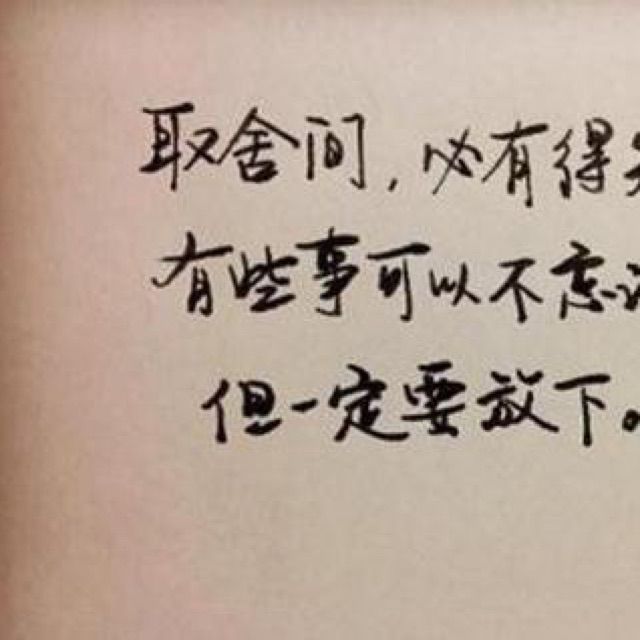 取舍间,必有得
有些事可以不忘
但一定要放下。